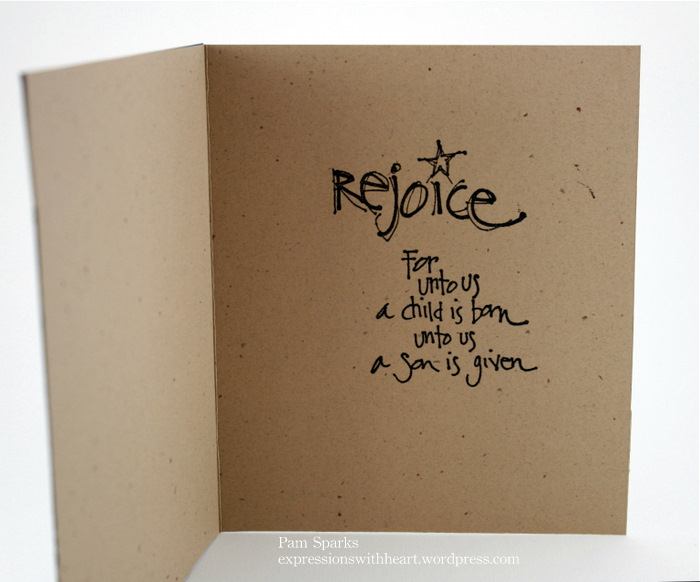 Rejoice
For
unto us
a child is born
unto us
a son is given
Pam Sparks
expressionswithheart.wordpress.com